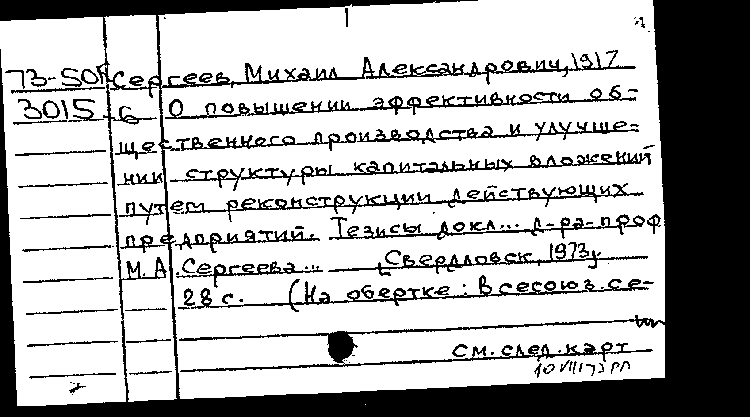 73-50 Сергеев, Михаил Александрович, 1917
3015-6 О повышении эффективности об-
щественного производства и улучше-
нии структуры капитальных вложений
путем реконструкции действующих
предприятий. Тезисы докл... д-ра-проф
М. А. Сергеева... [Свердловск, 1973].
28 с. (На обертке: Всесоюз. се-
см. след. карт
10 VIII 73